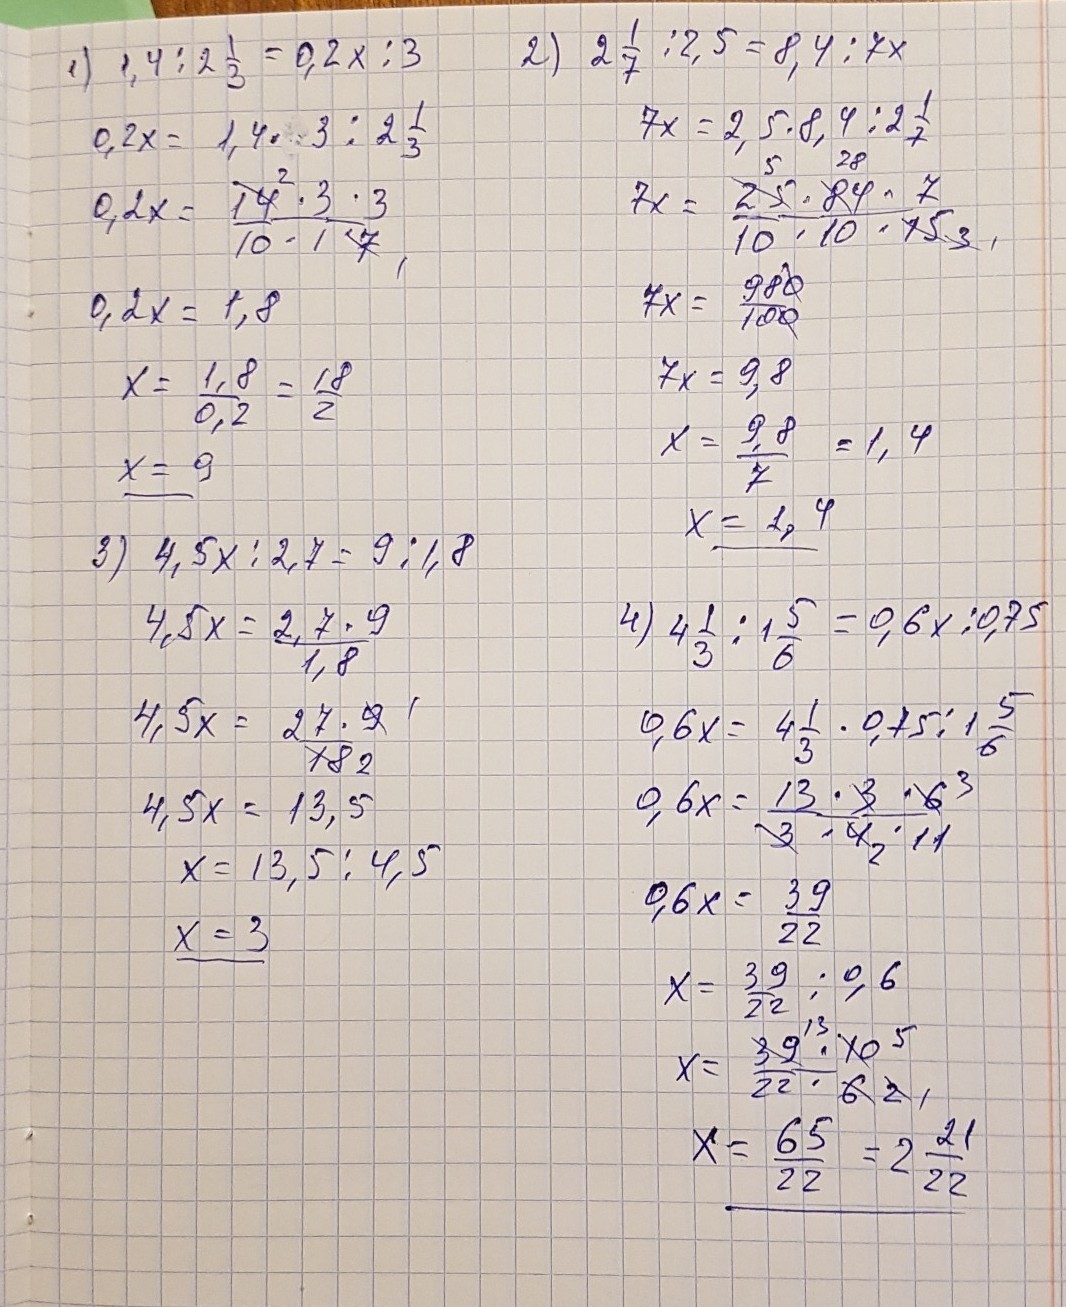 1) 1,4 : 2 1/3 = 0,2x : 3
0,2x = 1,4 · 3 : 2 1/3
0,2x = 14 2 · 3 · 3 / 10 · 1 7
0,2x = 1,8
x = 1,8/0,2 = 18/2
x = 9
2) 2 1/7 : 2,5 = 8,4 : 7x
7x = 2,5 · 8,4 : 2 1/7
7x = 25 5 · 84 28 · 7 / 10 · 10 · 15 3
7x = 980/100
7x = 9,8
x = 9,8/7 = 1,4
x = 1,4
3) 4,5x : 2,7 = 9 : 1,8
4,5x = 2,7 · 9 / 1,8
4,5x = 27 · 9 1 / 18 2
4,5x = 13,5
x = 13,5 : 4,5
x = 3
4) 4 1/3 : 1 5/6 = 0,6x : 0,75
0,6x = 4 1/3 · 0,75 : 1 5/6
0,6x = 13 · 3 · 6 3 / 3 · 4 2 · 11
0,6x = 39/22
x = 39/22 : 0,6
x = 39 13 · 10 5 / 22 · 6 2 1
x = 65/22 = 2 21/22